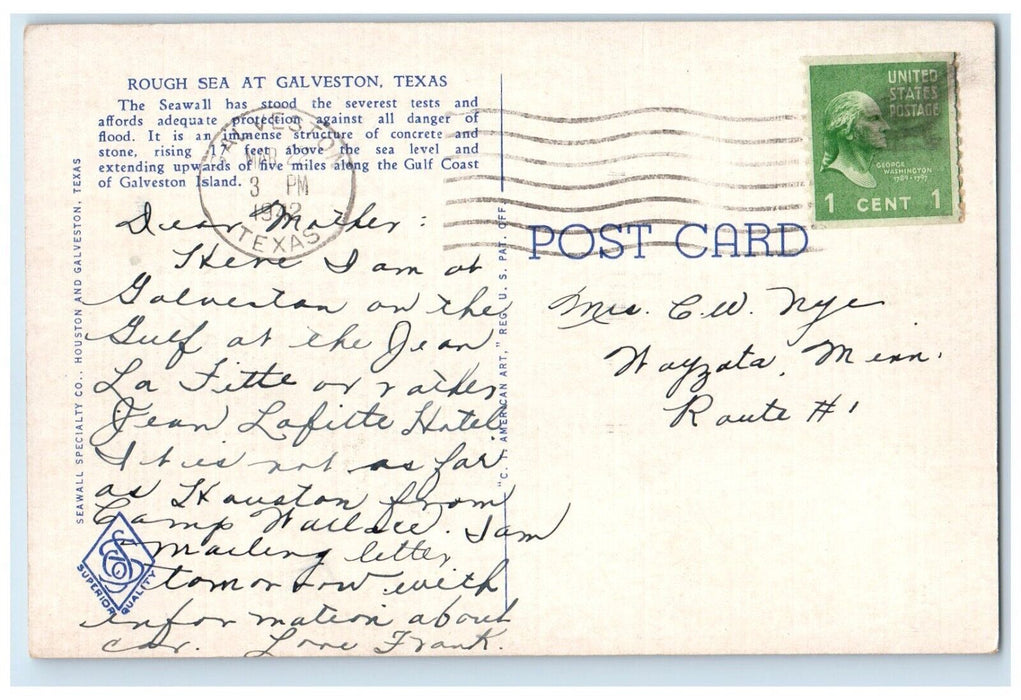 ROUGH SEA AT GALVESTON, TEXAS
The Seawall has stood the severest tests and
affords adequate protection against all danger of
flood. It is an immense structure of concrete and
stone, rising 17 feet above the sea level and
extending upwards of five miles along the Gulf Coast
of Galveston Island.
GALVESTON
MAR 2
3 PM
1942
TEXAS
Dear Mother:
Here I am at
Galveston on the
Gulf at the Jean
La Fitte or rather
Jean Lafitte Hotel
It is not as far
as Houston from
Camp Wallace. I am
mailing letter
tomorrow with
information about
car. Love Frank.
SEAWALL SPECIALTY CO., HOUSTON AND GALVESTON, TEXAS
SUPERIOR QUALITY
"C. T. AMERICAN ART," REG. U. S. PAT. OFF.
UNITED
STATES
POSTAGE
GEORGE
WASHINGTON
1789-1797
1 CENT 1
POST CARD
Mrs. C.W. Nye
Wayzata, Minn.
Route #1